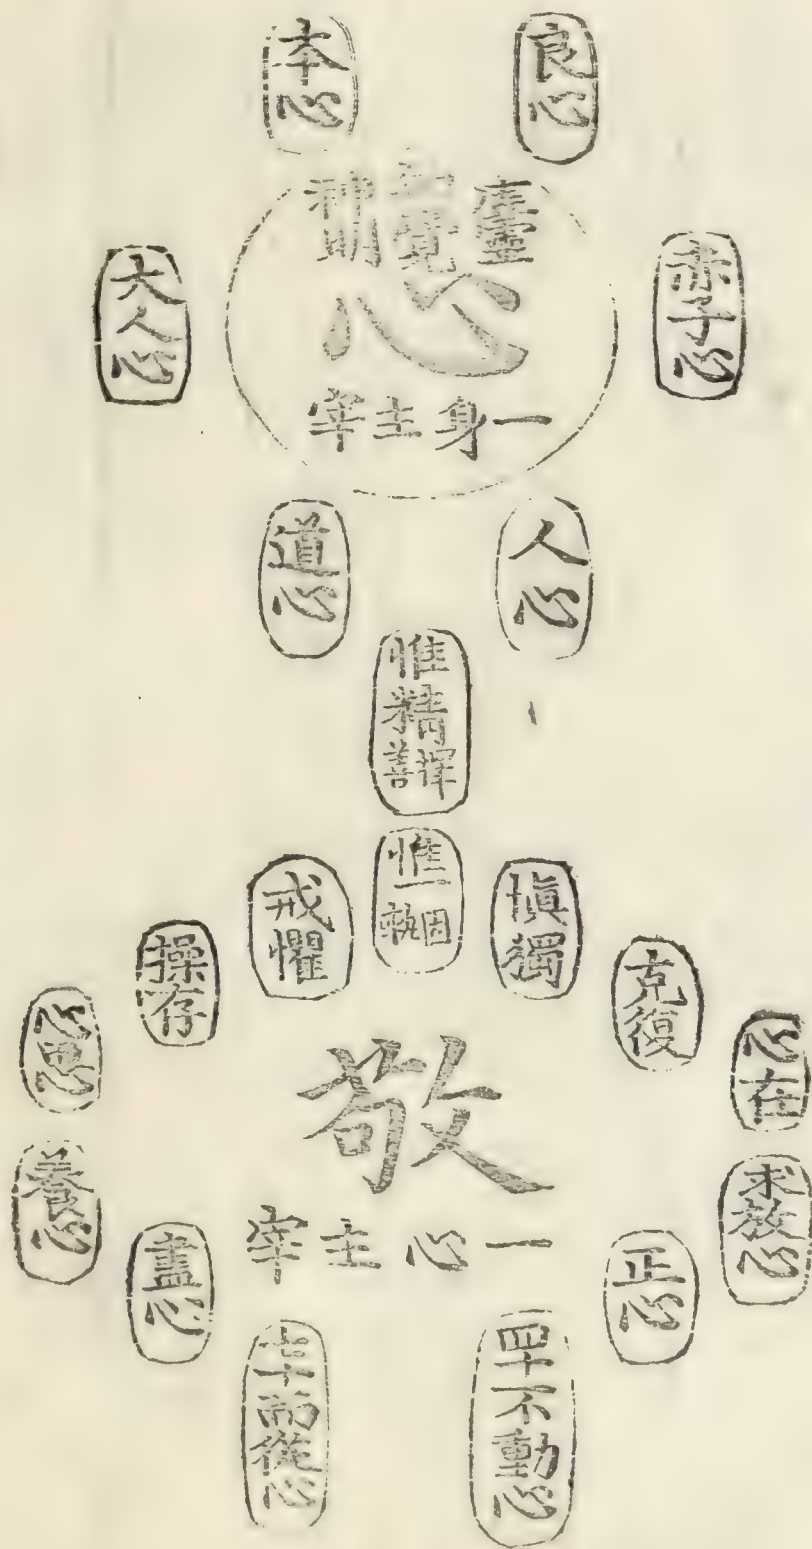 良心
本心
虛靈
知覺
神明
心
一身主宰
赤子心
大人心
人心
道心
惟精擇善
惟一固執
愼獨
戒懼
克復
操存
心在
心思
敬
一心主宰
求放心
養心
正心
盡心
四十不動心
七十而從心